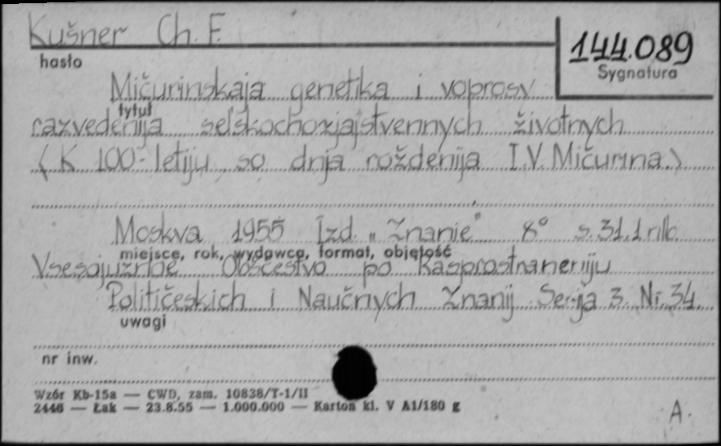 Kušner Ch. F.
hasło
144.089
Sygnatura
Mičurinskaja genetika i voprosy
tytuł
razvedenija sel'skochozjajstvennych životnych
(K 100-letiju so dnja roždenija I.V. Mičurina.)
Moskva 1955 Izd. „Znanie" 8° s. 31. 1 nlb.
miejsce, rok, wydawca, format, objętość
Vsesojuznoe Obščestvo po Rasprostraneniju
Političeskich i Naučnych Znanij. Serija 3. Nr. 34.
uwagi
nr inw.
Wzór Kb-15a — CWD, zam. 10838/T-1/II
2446 — Łak — 23.8.55 — 1.000.000 — Karton kl. V A1/180 g
A.